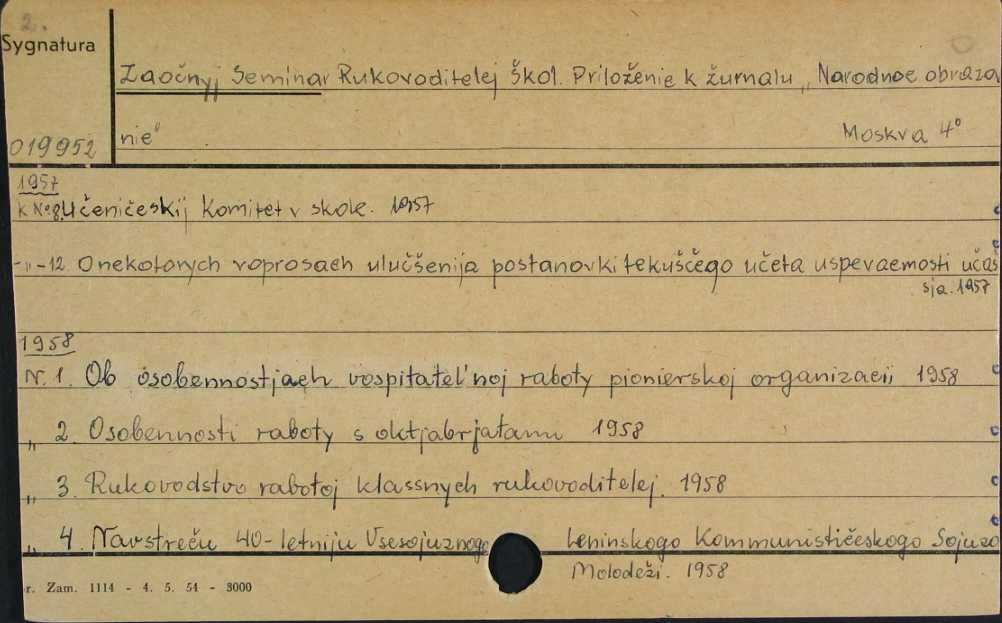 2.
Sygnatura
Zaočnyj Seminar Rukovoditelej Škol. Priloženie k žurnalu „Narodnoe obrazo
019952 nie" Moskva 4°
1957
k No 8. Učeničeskij Komitet v skole. 1957
-„-12. O nekotorych voprosach ulučšenija postanovki tekuščego učeta uspevaemosti učaš
sja. 1957
1958
N. 1. Ob osobennostjach vospitatel'noj raboty pionierskoj organizacii 1958
„ 2. Osobennosti raboty s oktjabrjatami 1958
„ 3. Rukovodstvo rabotoj klassnych rukovoditelej. 1958
„ 4. Navstreču 40-letniju Vsesojuznogo Leninskogo Kommunističeskogo Sojuza
Molodeži. 1958
r. Zam. 1114 - 4. 5. 54 - 3000